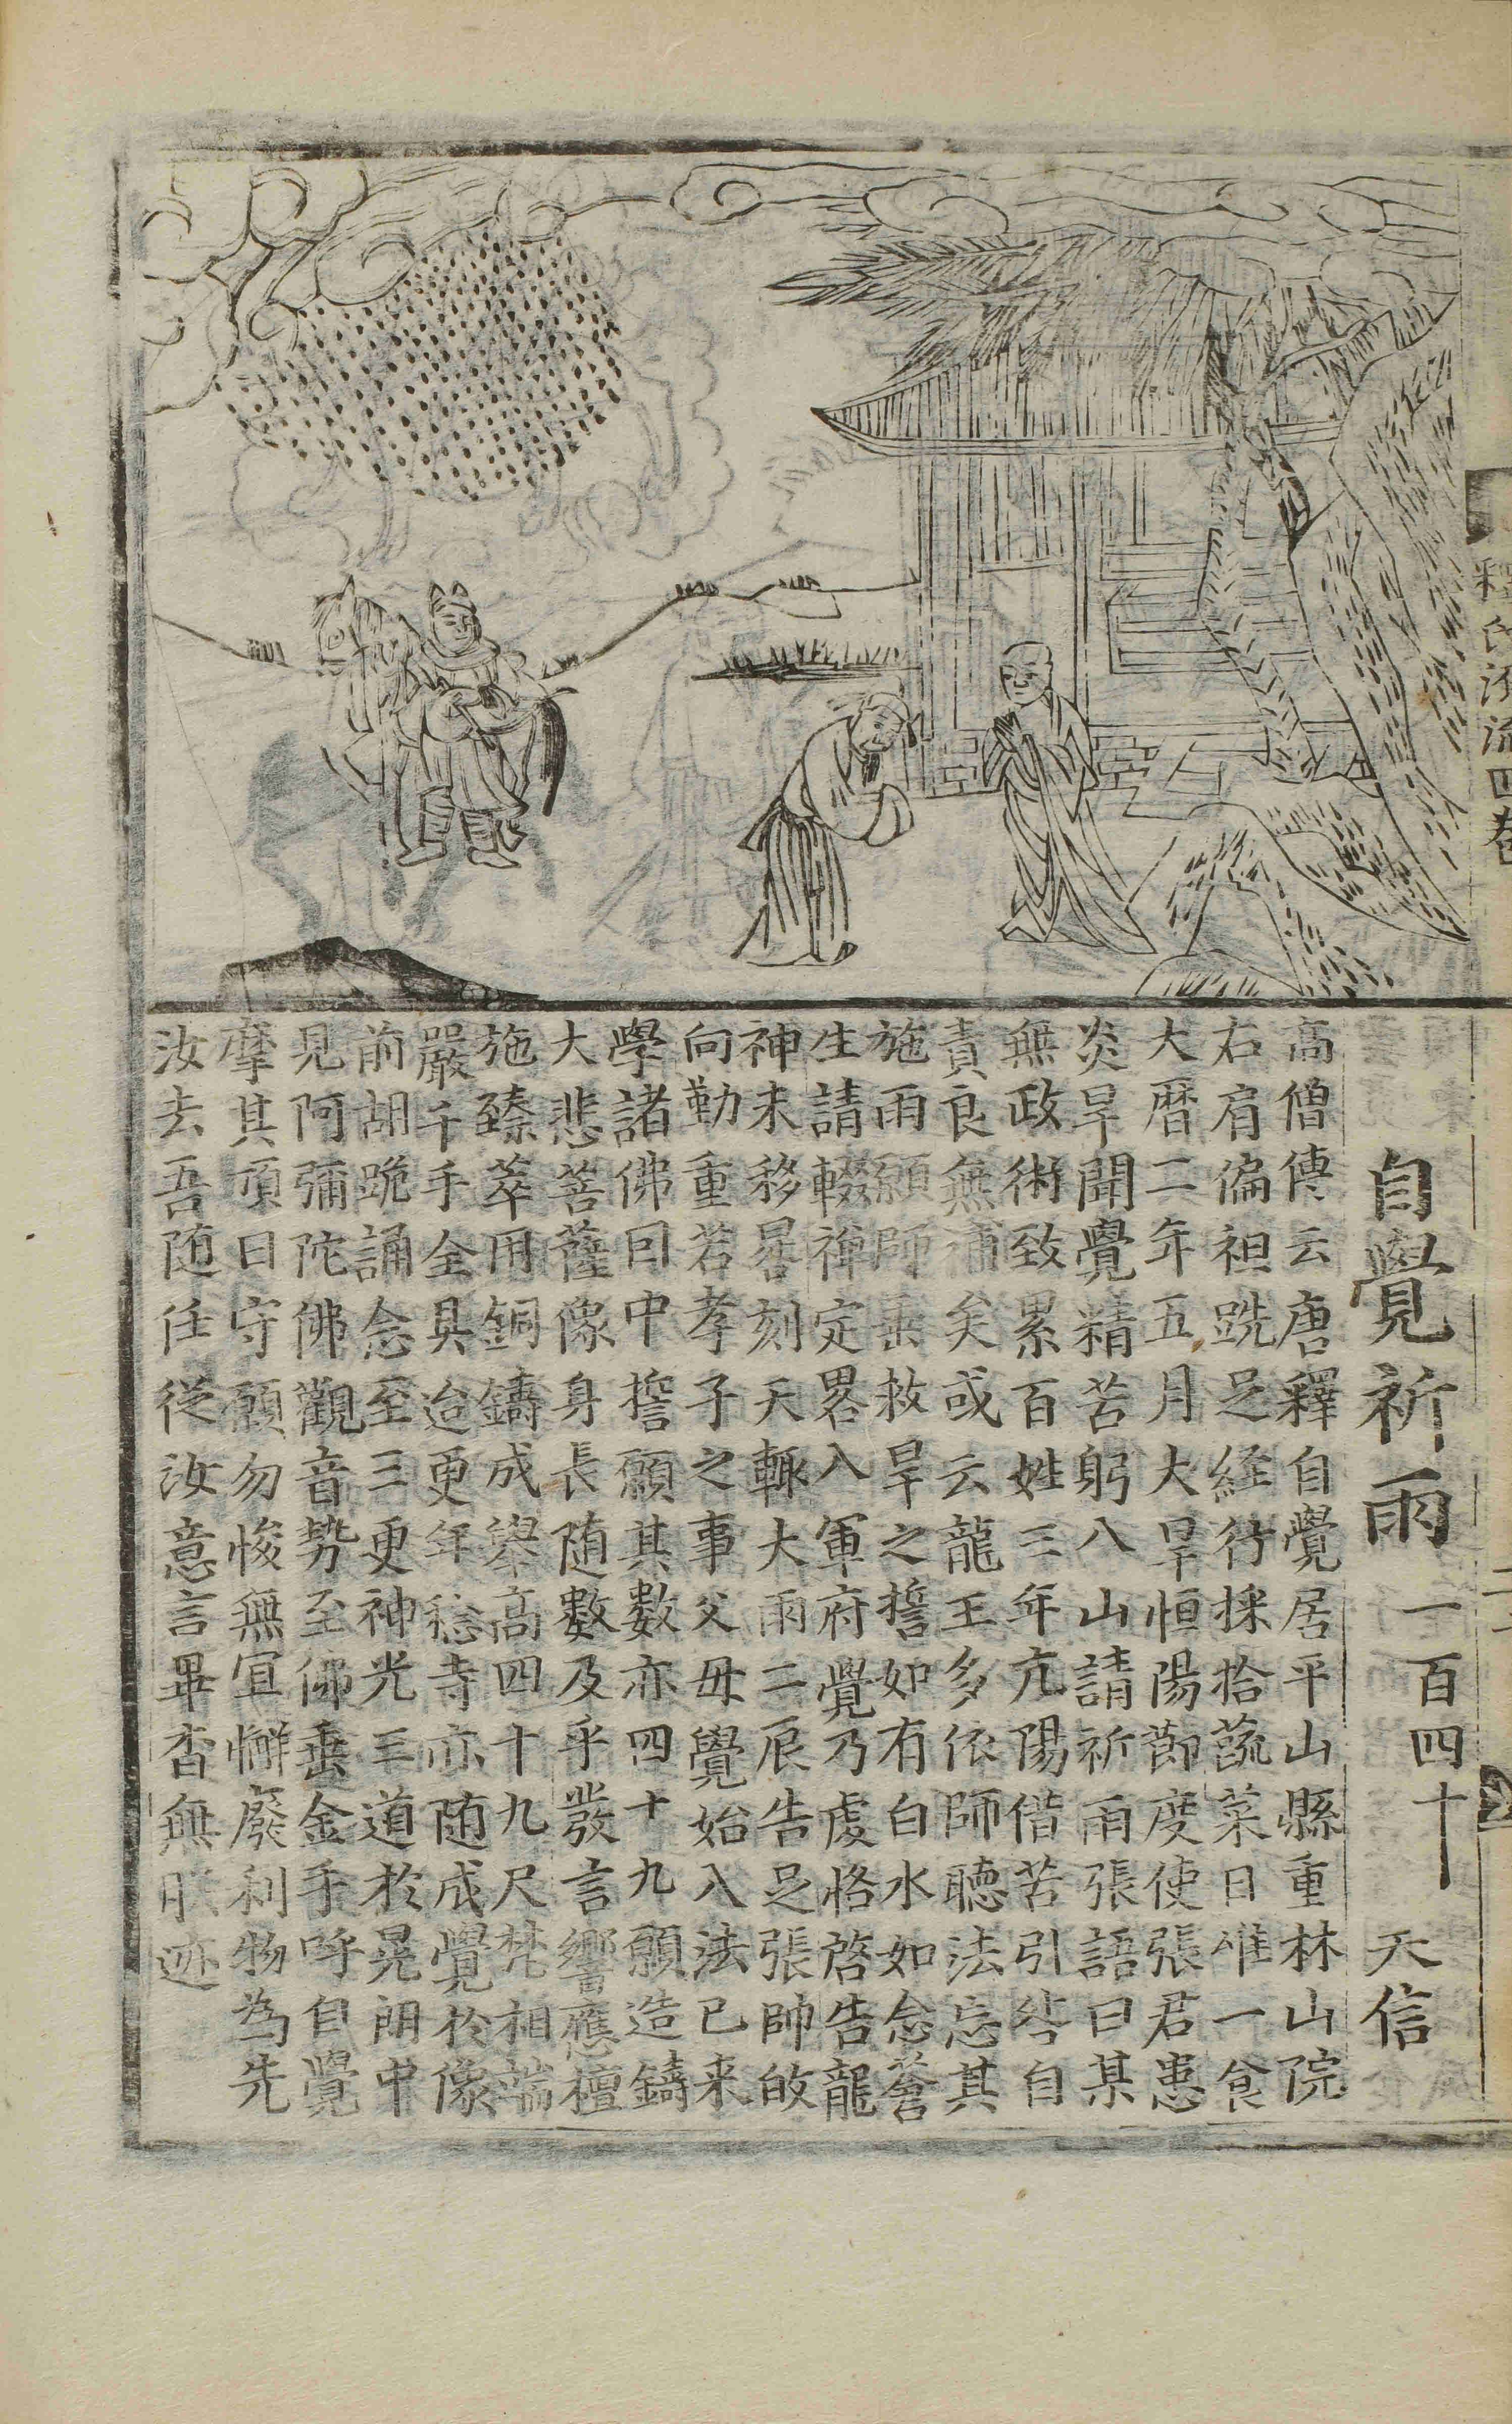 釋氏源流四卷
自覺祈雨 一百四十 天信
高僧傳云唐釋自覺居平山縣重林山院
右肩偏袒跣足經行採拾蔬菜日唯一食
大曆二年五月大旱恒陽節度使張君患
炎旱聞覺精苦躬入山請祈雨張語曰某
無政術致累百姓三年亢陽借苦引咎自
責良無補矣或云龍王多依師聽法忘其
施雨願師垂救旱之誓如有白水如念蒼
生請輟禪定畧入軍府覺乃虔恪啓告龍
神未移晷刻天輒大雨二辰告足張帥敀
向勤重若孝子之事父母覺始入法已来
學諸佛囙中誓願其數亦四十九願造鑄
大悲菩薩像身長随數及乎發言響應檀
施臻萃用銅鑄成舉高四十九尺梵相端
嚴千手全具迨更年稔寺亦随成覺於像
前胡跪誦念至三更神光三道於晃朗中
見阿彌陀佛觀音勢至佛垂金手呼自覺
摩其頂曰守願勿悛無冝懈廢利物為先
汝去吾随任從汝意言畢杳無眹迹